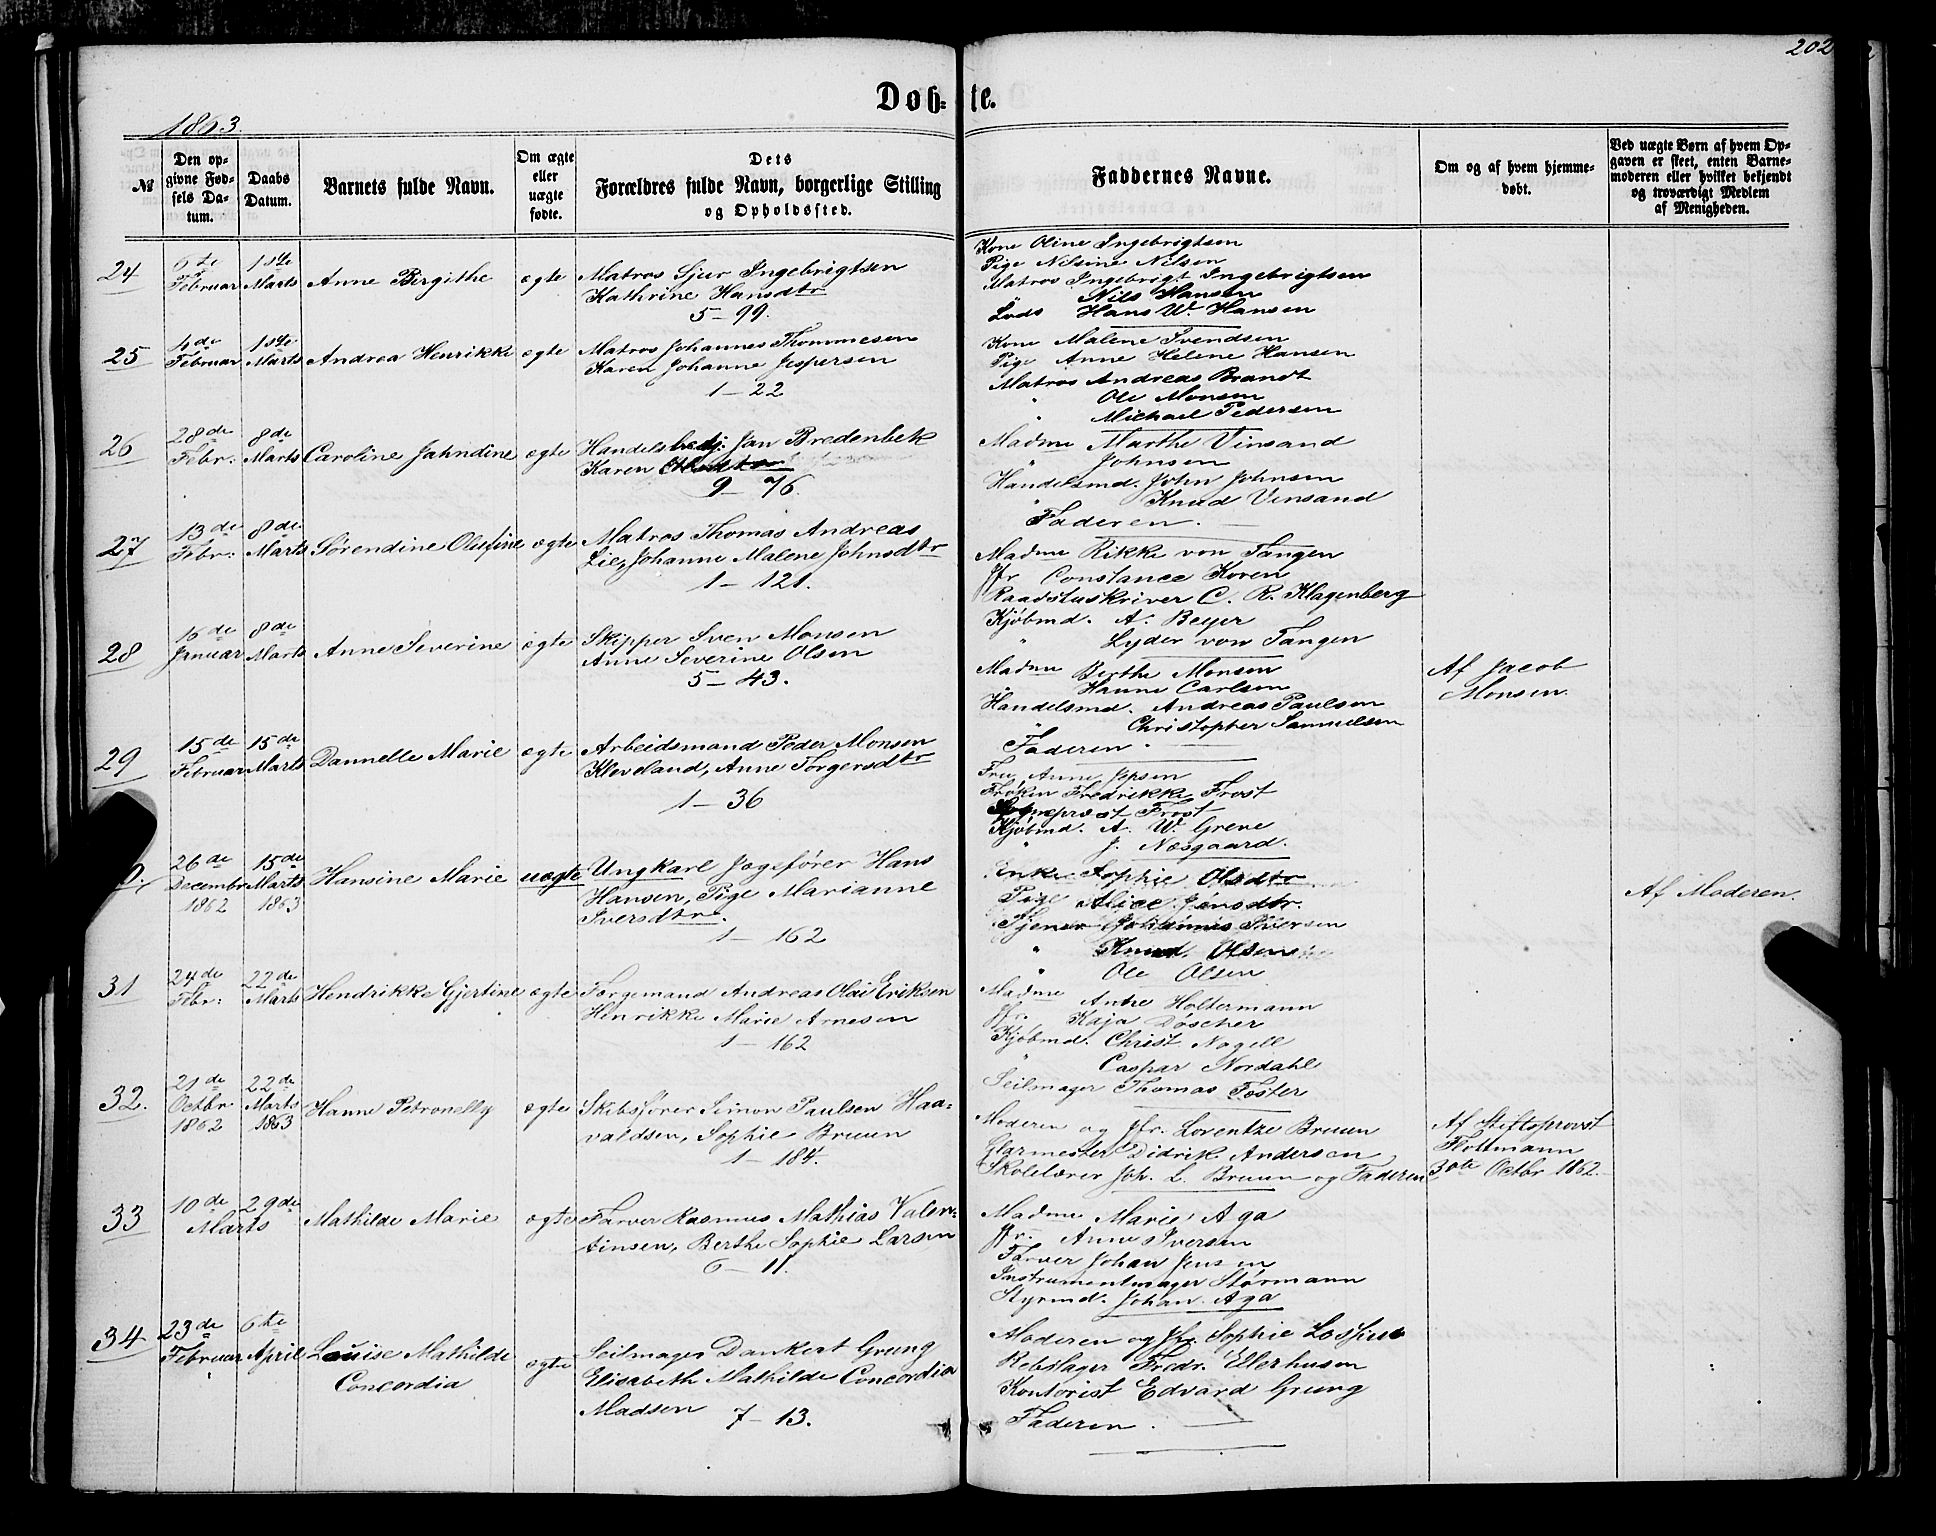 202
Døb-te.
1863.
№
Den op-
givne Fød-
sels Da-
tum.
Daabs
Datum.
Barnets fulde Navn.
Om ægte
eller
uægte
fødte.
Dets
Forældres fulde Navn, borgerlige Stilling
og Opholdssted.
Faddernes Navne.
Om og af hvem hjemme-
døbt.
Ved uægte Børn af hvem Op-
gaven er skeet, enten Barne-
moderen eller hvilket bekjendt
og troværdigt Medlem
af Menigheden.
24
6te
Februar
1ste
Marts
Anne Birgithe
ægte
Matros Sjur Ingebrigtsen
Kathrine Hansdtr
5-99.
Kone Oline Ingebrigtsen
Pige Nilsine Nilsen
Matros Ingebrigt Ingebrigtsen
Nils Hansen
Lods Hans W. Hansen
25
4de
Februar
1ste
Marts
Andrea Henrikke
ægte
Matros Johannes Thommesen
Karen Johanne Jespersen
1-22
Kone Malene Svendsen
Pige Anne Helene Hansen
Matros Andreas Brandt
" Ole Monsen
" Michael Pedersen
26
28de
Febr:
8de
Marts
Caroline Jahndine
ægte
Handelsbetj. Jan Bredenbek
Karen
9-76.
Madme Marthe Vinsand
" Johnsen
Handelsmd. John Johnsen
" Knud Vinsand
Faderen.
27
13de
Febr:
8de
Marts
Sørendine Olufine
ægte
Matros Thomas Andreas
Lie, Johanne Malene Johnsdtr
1-121.
Madme Rikke von Tangen
Jfr Constance Koren
Raadstuskriver C. R. Klagenberg
Kjøbmd. A. Beyer
" Lyder von Tangen
28
16de
Januar
8de
Marts
Anne Severine
ægte
Skipper Sven Monsen
Anne Severine Olsen
5-43.
Madme Berthe Monsen
" Hanne Carlsen
Handelsmd. Andreas Paulsen
" Christopher Samuelsen
Faderen.
Af Jacob
Monsen.
29
15de
Februar
15de
Marts
Dannelle Marie
ægte
Arbeidsmand Peder Monsen
Kleveland, Anne Torgersdtr
1-36
Fru Anne Jepsen
Frøken Fredrikke Frost
Sognepræst Frost
Kjøbmd. A. W. Grene
" J. Næsgaard.
26de
Decembr
1862
15de
Marts
1863
Hansine Marie
uægte
Ungkarl Jægefører Hans
Hansen, Pige Marianne
Iversdtr.
1-162
Enke Sophie Olsdtr
Pige Alice Jensdtr.
Tjener Johannes Iversen
" Knud Olsen
" Ole Olsen
Af Moderen.
31
24de
Febr:
22de
Marts
Hendrikke Gjertine
ægte
Færgemand Andreas Olai Eriksen
Henrikke Marie Arnesen
1-162
Madme Anne Holtermann
Jfr. Kaja Døscher
Kjøbmd. Christ Nagell
" Caspar Nordahl
Seilmager Thomas Foster
32.
21de
Octbr
1862
22de
Marts
1863
Hanne Petronelly
ægte
Skibsfører Simon Paulsen Haa-
valdsen, Sophie Bruun
1-184.
Moderen og Jfr. Lorentze Bruun
Glarmester Didrik Andersen
Skolelærer Joh. L. Bruun og Faderen
Af Stiftsprovst
Flottmann
30te Octbr 1862.
33
10de
29de
Marts
Mathilde Marie
ægte
Farver Rasmus Mathias Valen-
tinsen, Berthe Sophie Larsen
6-11.
Madme Marie Aga
Jfr. Anne Iversen
Farver Johan Jensen
Instrumentmager Størmann
Styrmd. Johan Aga
34
23de
Februar
6te
April
Louise Mathilde
Concordia
ægte
Seilmager Dankert Grung
Elisabeth Mathilde Concordia
Madsen 7-13.
Moderen og Jfr Sophie
Rebslager Fredr. Ellerhusen
Kontorist Edvard Grung
Faderen.